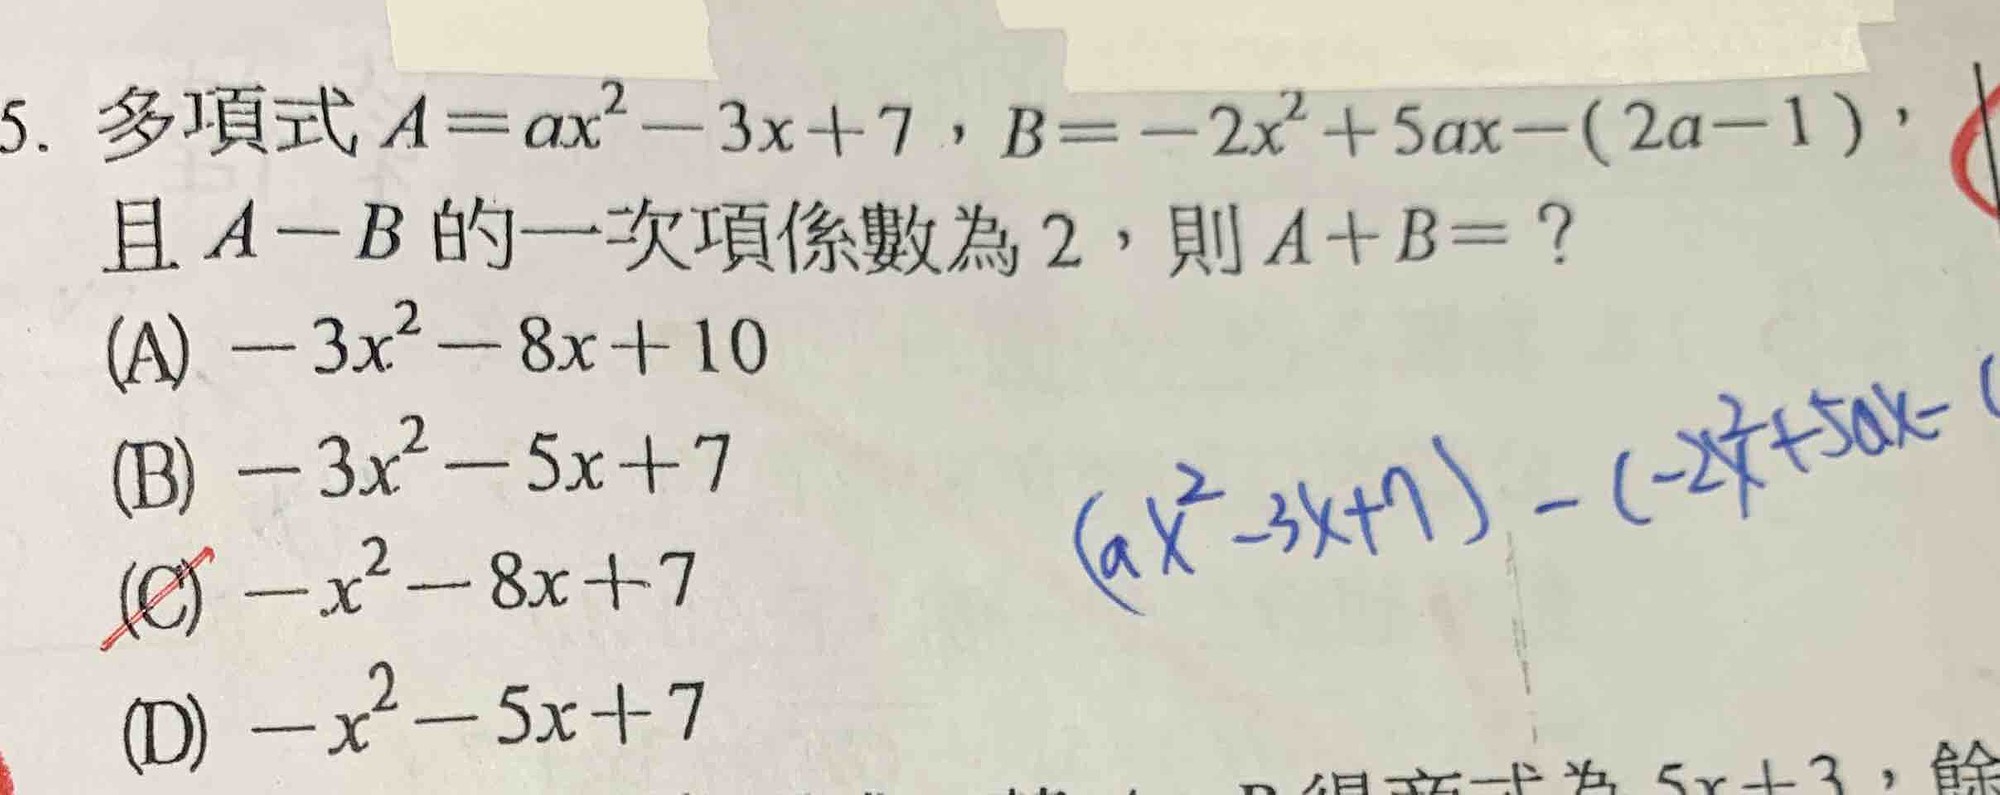 5. 多項式 A＝ax²－3x＋7，B＝－2x²＋5ax－(2a－1)，
且 A－B 的一次項係數為 2，則 A＋B＝？
(A) －3x²－8x＋10
(B) －3x²－5x＋7
(C) －x²－8x＋7
(D) －x²－5x＋7
(ax²-3x+7) - (-2x²+5ax- (
5x＋3，餘